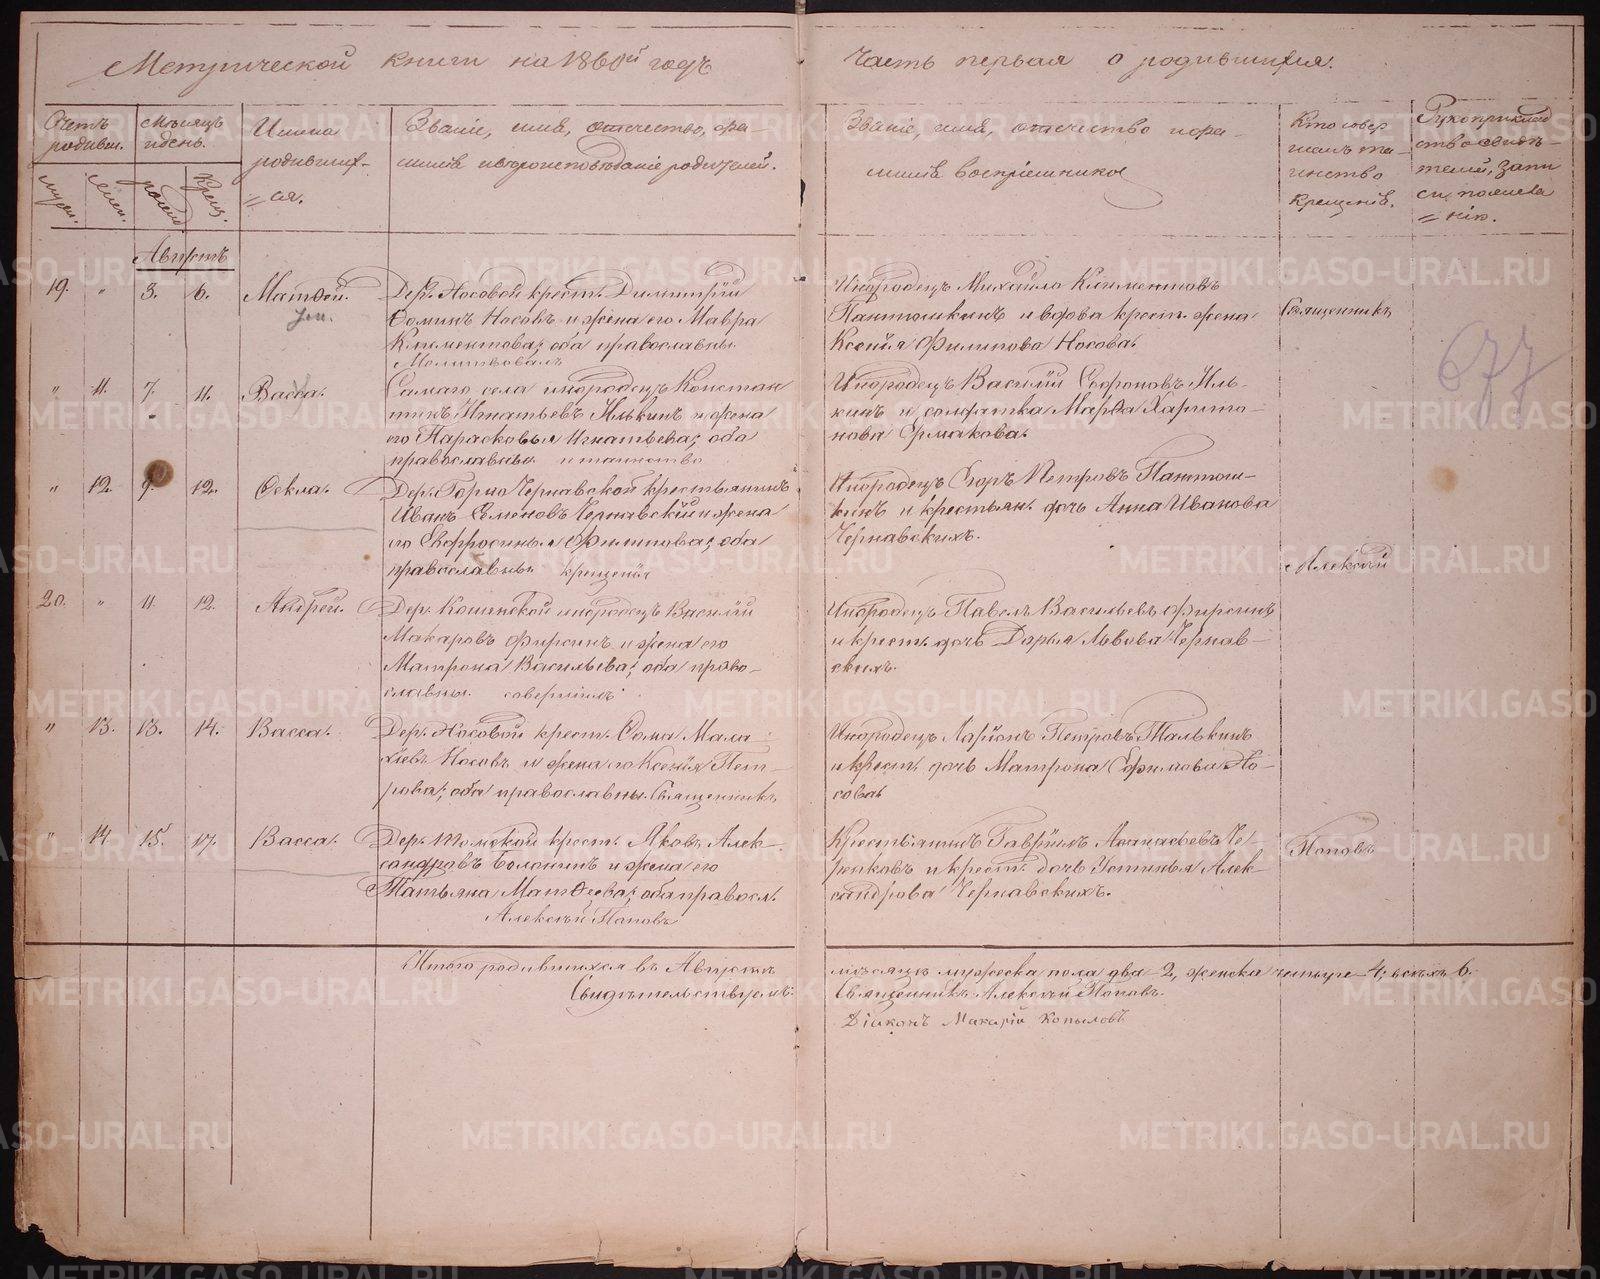 Метрической книги на 1860й годъ
Часть первая о родившихся.
Счетъ родивш.
Мѣсяцъ и день.
Имена родившихъ=ся.
Званіе, имя, отчество, фа-
милія и вѣроисповѣданіе родителей.
Званіе, имя, отчество и фа-
милія воспріемниковъ
Кто совер
шалъ та-
инство
крещенія.
Рукоприклад
ство свидѣ-
телей, запи
си, по желан
=нію.
мужес.
женс.
рожд.
Крещ.
Августъ
19. " 3. 6. Матѳей.
Дер. Носовой крест. Димитрій
Ѳоминъ Носовъ и жена его Мавра
Климентова; оба православны.
Молитвовалъ
Инородецъ Михайло Климентовъ
Пантюшкинъ и вдова крест. жена
Ксенія Филипова Носова.
Священникъ
" 11. 7. 11. Васса.
Самаго села инородецъ Констан
тинъ Игнатьевъ Илькинъ и жена
его Парасковья Игнатьева; оба
православны. и таинство
Инородецъ Василій Софроновъ Иль-
кинъ и солдатка Марѳа Харито-
нова Ермакова.
677
" 12. 9. 12. Ѳекла.
Дер. Горно Чернавской крестьянинъ
Иванъ Семеновъ Чернавскій и жена
его Евфросинья Филипова; оба
православны. крещенія
Инородецъ Егоръ Петровъ Пантюш-
кинъ и крестьян. дочь Анна Иванова
Чернавскихъ.
Алексѣй
20. " 11. 12. Андрей.
Дер. Кошинской инородецъ Василій
Макаровъ Фирсинъ и жена его
Матрона Васильева; оба право-
славны. совершилъ
Инородецъ Павелъ Васильевъ Фирсинъ
и крест. дочь Дарья Львова Чернав-
скихъ.
" 13. 13. 14. Васса.
Дер. Носовой крест. Ѳома Мала
хіевъ Носовъ и жена его Ксенія Пет-
рова; оба православны. Священникъ
Инородецъ Ларіонъ Петровъ Талькинъ
и крест. дочь Матрона Ефимова Но-
сова.
" 14. 15. 17. Васса.
Дер. крест. Яковъ Алек-
сандровъ Болонинъ и жена его
Татьяна Матѳеева; оба правосл.
Алексѣй Поповъ
Крестьянинъ Гавріилъ Аѳанасьевъ Че
репковъ и крест. дочь Устинья Алек-
сандрова Чернавскихъ.
Поповъ
Итого родившихся въ Августѣ
мѣсяцѣ мужеска пола два-2, женска четыре-4; всѣхъ 6.
Свидѣтельствуемъ:
Священникъ Алексѣй Поповъ.
Діаконъ Макарій Копыловъ
METRIKI.GASO-URAL.RU